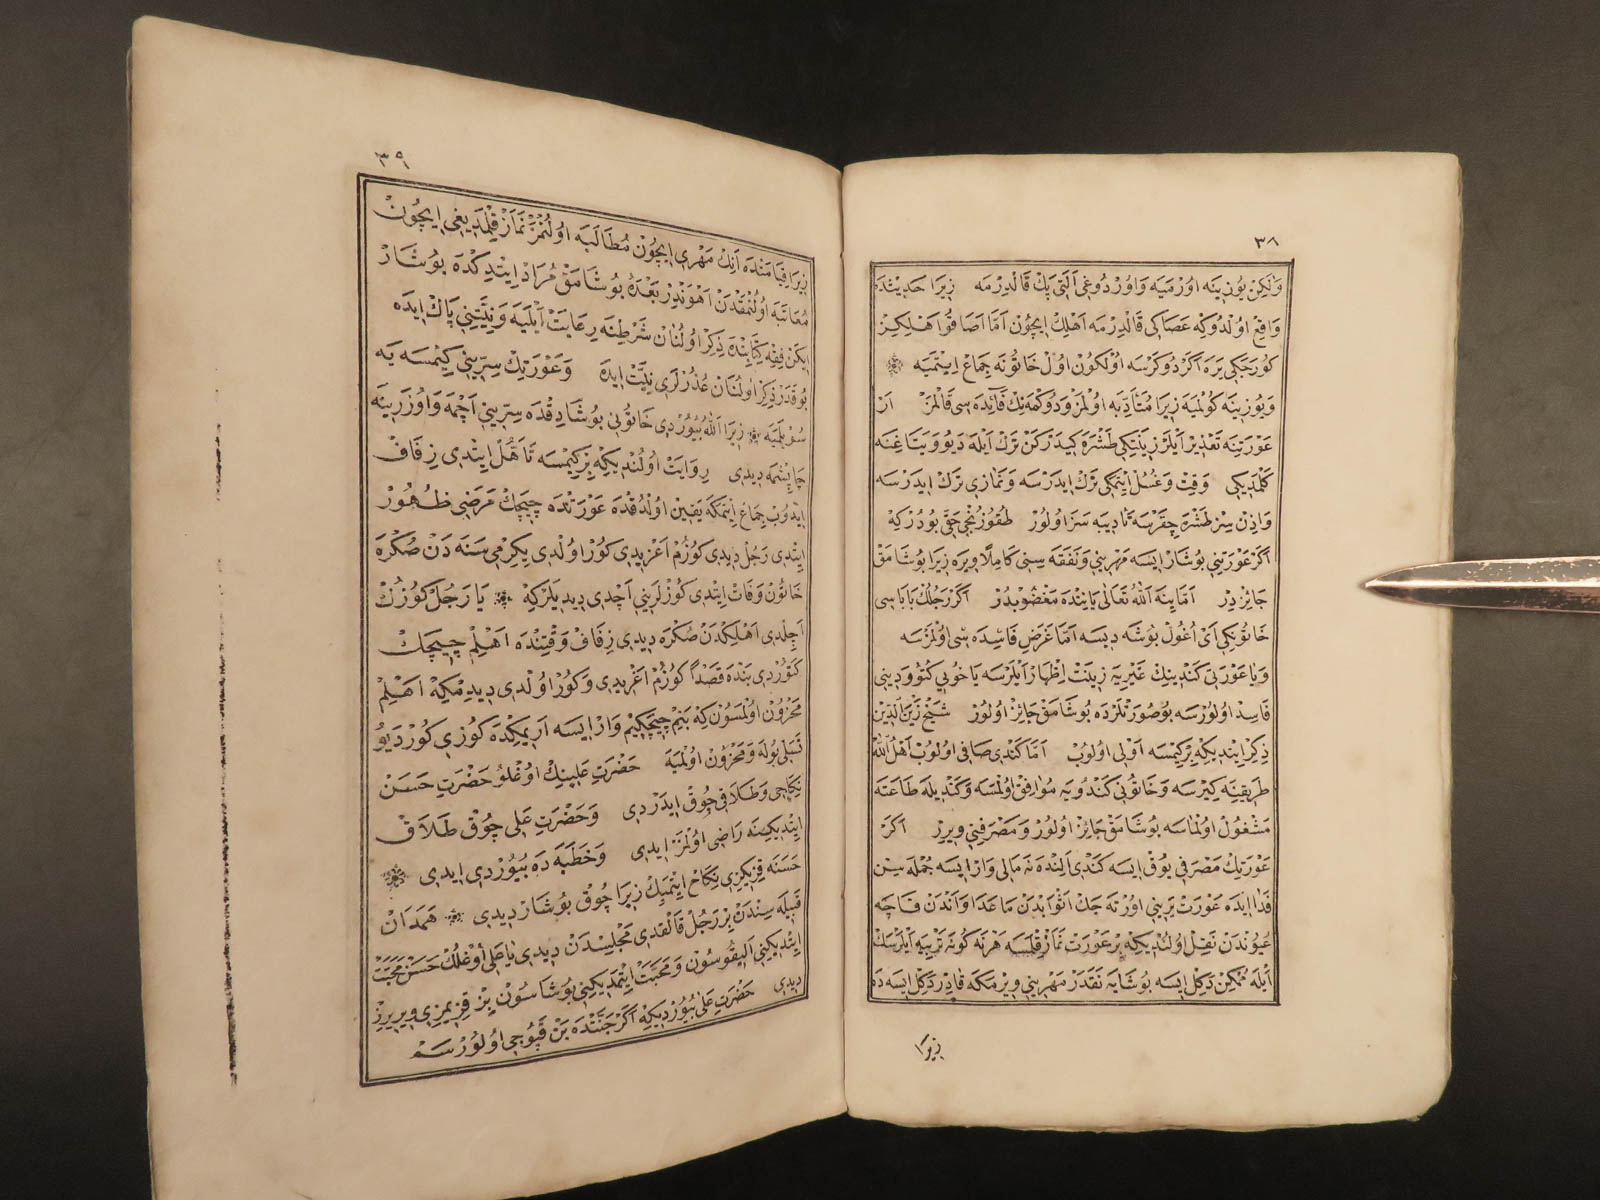 ٣٨
وَلٰكِنْ يُوزِينَه اُورْمَيَه وَاُورْدُوغِى آلَتِى پَكْ قَالْدِرْمَه زِيرَا حَدِيثْدَه
وَاقِعْ اُولْدُوكِه عَصَاكِى قَالْدِرْمَه اَهْلِكْ اِيچُونْ اَمَّا آصَا قُوْ اَهْلِكِكْ
كُورَجَكِى يَرَه اَكَرْ دُوكَرْسَه اُولْكُونْ اُولْ خَاتُونَه جِمَاعْ اِيتْمَيَه
وَيُوزِينَه كُولْمَيَه زِيرَا مُتَأَدِّبَه اُولْمَزْ وَدُوكْمَه يَكْ فَائِدَه سِى قَالْمَزْ اَرْ
عَوْرَتِنَه تَعْذِيرْ اَيْلَرْ زِينَتِكِى طَشْرَه كِيدَرْكَنْ تَرْكْ اَيْلَه دِيُو وَيَتَاغِنَه
كَلْمَدِيكِى وَقِتْ وَغُسْلْ اِيتْمَكِى تَرْكْ اِيدَرْسَه وَنَمَازِى تَرْكْ اِيدَرْسَه
وَاِذِنْ سِزْ طَشْرَه چِقَرْسَه تَأْدِيبَه سَزَا اُولُورْ طُقُوزُنْجِى حَقّ بُودُرْكِه
اَكَرْ عَوْرَتِينِى بُوشَارْ اِيسَه مَهْرِينِى وَنَفَقَه سِينِى كَامِلًا وِيرَه زِيرَا بُوشَامَقْ
جَائِزْدِرْ اَمَّا يِنَه اللّٰه تَعَالٰى يَانِنْدَه مَغْضُوبْدُرْ اَكَرْ رَجُلُكْ بَابَاسِى
خَاتُونِكِى اَىْ اُغُولْ بُوشَه دِيسَه اَمَّا غَرَضِ فَاسِدَه سِى اُولْمَزْسَه
وَيَا عَوْرَتِى كَنْدِينِكْ غَيْرِيَه زِينَتْ اِظْهَارْ اَيْلَرْسَه يَا خُويِى كُتُو وَدِينِى
فَاسِدْ اُولُورْسَه بُوصُورَتْلَرْدَه بُوشَامَقْ جَائِزْ اُولُورْ شَيْخْ زَيْنُ الدِّينْ
ذِكِرْ اِيتْدِيكِه بِرْكِيمْسَه اَوْلِى اُولُوبْ اَمَّا كَنْدِى صَافِى اُولُوبْ اَهْلُ اللّٰه
طَرِيقِنَه كِيرْسَه وَخَاتُونِى كَنْدُويَه مُوَافِقْ اُولْمَسَه وَكَنْدِيلَه طَاعَتَه
مَشْغُولْ اُولْمَاسَه بُوشَامَقْ جَائِزْ اُولُورْ وَمَصْرَفِنِى وِيرِرْ اَكَرْ
عَوْرَتِكْ مَصْرَفِى يُوقْ اِيسَه كَنْدِى اَلِنْدَه نَه مَالِى وَارْ اِيسَه جُمْلَه سِنْ
فَدَا اِيدَه عَوْرَتْ يَرِينِى اُورْتَه جَكْ اَثْوَابْدَنْ مَاعَدَا وَآنْدَنْ قَاچَه
عُيُونْدَنْ نَقِلْ اُولُنْدِيكِه بِرْ عَوْرَتْ نَمَازْ قِلْمَسَه هَرْنَه كُونَه تَرْبِيَه اَيْلَرْسَكْ
اَيْلَه مُمْكِنْ دَكِلْ اِيسَه بُوشَايَه نَقَدَرْ مَهْرِينِى وِيرْمَكَه قَادِرْ دَكِلْ اِيسَه دَه
زيرا
٣٩
زِيرَا قِيَامَتْدَه آنِكْ مَهْرِى اِيچُونْ مُطَالَبَه اُولُنْمَزْ نَمَازْ قِلْمَدِيغِى اِيچُونْ
مُعَاتَبَه اُولُنْمَقْدَنْ اَهْوَنْدِرْ بَعْدَهُ بُوشَامَقْ مُرَادْ اِيتْدِكْدَه بُوشَارْ
اِيكَنْ فِقِه كِتَابِنْدَه ذِكِرْ اُولُنَانْ شَرْطِنَه رِعَايَتْ اَيْلَيَه وَنِيَّتِنِى پَاكْ اِيدَه
بُوقَدَرْ ذِكِرْ اُولُنَانْ عُذُرْلَرِى نِيَّتْ اِيدَه وَعَوْرَتِكْ سِرِّينِى كِيمْسَه يَه
سُويْلَمَيَه زِيرَا اللّٰه بُيُورْدِى خَاتُونِى بُوشَادِقْدَه سِرِّينِى آچْمَه وَاُوزَرِينَه
چَاپِشْمَه دِيدِى رِوَايَتْ اُولُنْدِيكِه بِرْكِيمْسَه تَأَهُّلْ اِيتْدِى زِفَافْ
اِيدُوبْ جِمَاعْ اِيتْمَكَه يَقِينْ اُولْدُقْدَه عَوْرَتْدَه چِيچَكْ مَرَضِى ظُهُورْ
اِيتْدِى رَجُلْ دِيدِى كُوزُمْ آغْرِيدِى كُورْ اُولْدِى يِكِرْمِى سَنَه دَنْ صُكْرَه
خَاتُونْ وَفَاتْ اِيتْدِى كُوزْلَرِينِى آچْدِى دِيدِيلَرْكِه يَا رَجُلْ كُوزُكْ
آچِلْدِى اَهْلِكْدَنْ صُكْرَه دِيدِى زِفَافْ وَقْتِنْدَه اَهْلِمْ چِيچَكْ
كَتُورْدِى بَنْدَه قَصْدًا كُوزُمْ آغْرِيدِى وَكُورْ اُولْدِى دِيدِمْكِه اَهْلِمْ
مَحْزُونْ اُولْمَسُونْ كِه بَنِمْ چِيچَكِيمْ وَارْ اِيسَه اَرِيمِكْدَه كُوزِى كُورْ دِيُو
تَسَلِّى بُولَه وَمَحْزُونْ اُولْمَيَه حَضْرَتِ عَلِينِكْ اُوغْلُو حَضْرَتِ حَسَنْ
نِكَاحِى وَطَلَاقِى چُوقْ اِيدَرْدِى وَحَضْرَتِ عَلِى چُوقْ طَلَاقْ
اِيتْدِيكِينَه رَاضِى اُولْمَزْ اِيدِى وَخُطْبَه دَه بُيُورْدِى اِيدِى
حَسَنَه قِزِيكِزِى نِكَاحْ اِيتْمَيِكْ زِيرَا چُوقْ بُوشَارْ دِيدِى هَمَدَانْ
قَبِيلَه سِنْدَنْ بِرْ رَجُلْ قَالْقْدِى مَجْلِسْدَنْ دِيدِى يَا عَلِى اُوغْلُكْ حَسَنْ مَحَبَّتْ
اِيتْدِيكِينِى آلِيقُوسُونْ وَمَحَبَّتْ اِيتْمَدِيكِينِى بُوشَاسُونْ بِزْ قِزِيمِزِى وِيرِيرِزْ
دِيدِى حَضْرَتِ عَلِى بُيُورْدِيكِه اَكَرْ جَنَّتْدَه بَنْ قَپُوجِى اُولُورْسَمْ